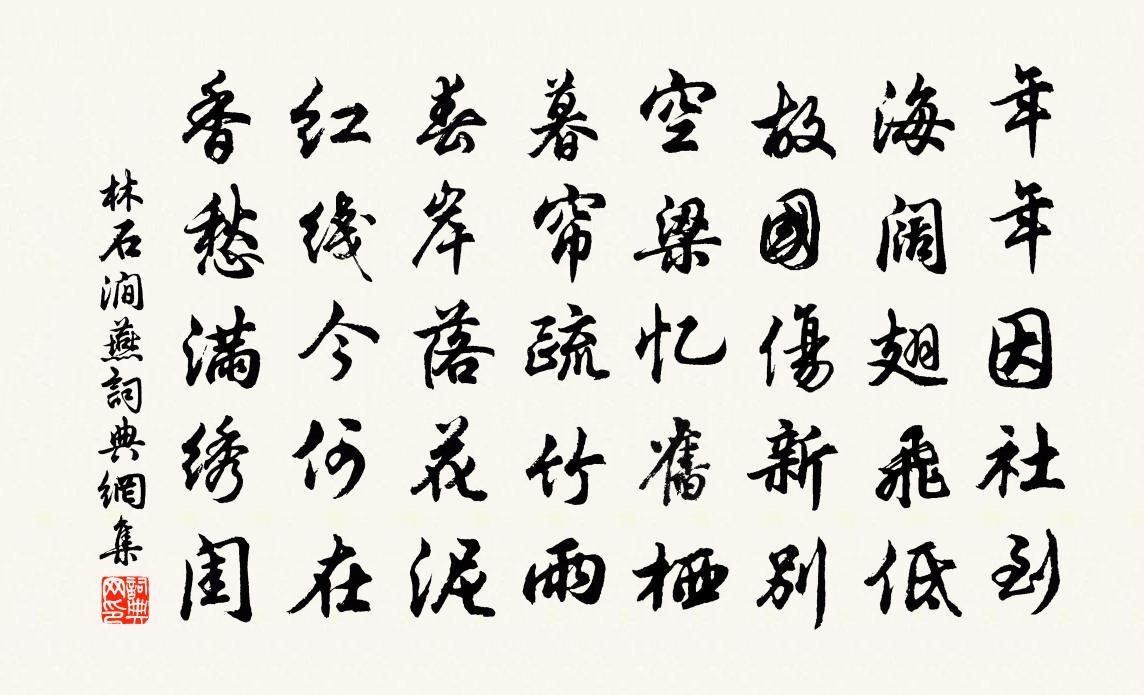 年年因社到
海阔翅飛低
故國傷新别
空梁忆舊栖
暮帘疏竹雨
春岸落花泥
红线今何在
香愁满绣闺
林石澗燕詞典網集
詞典网印